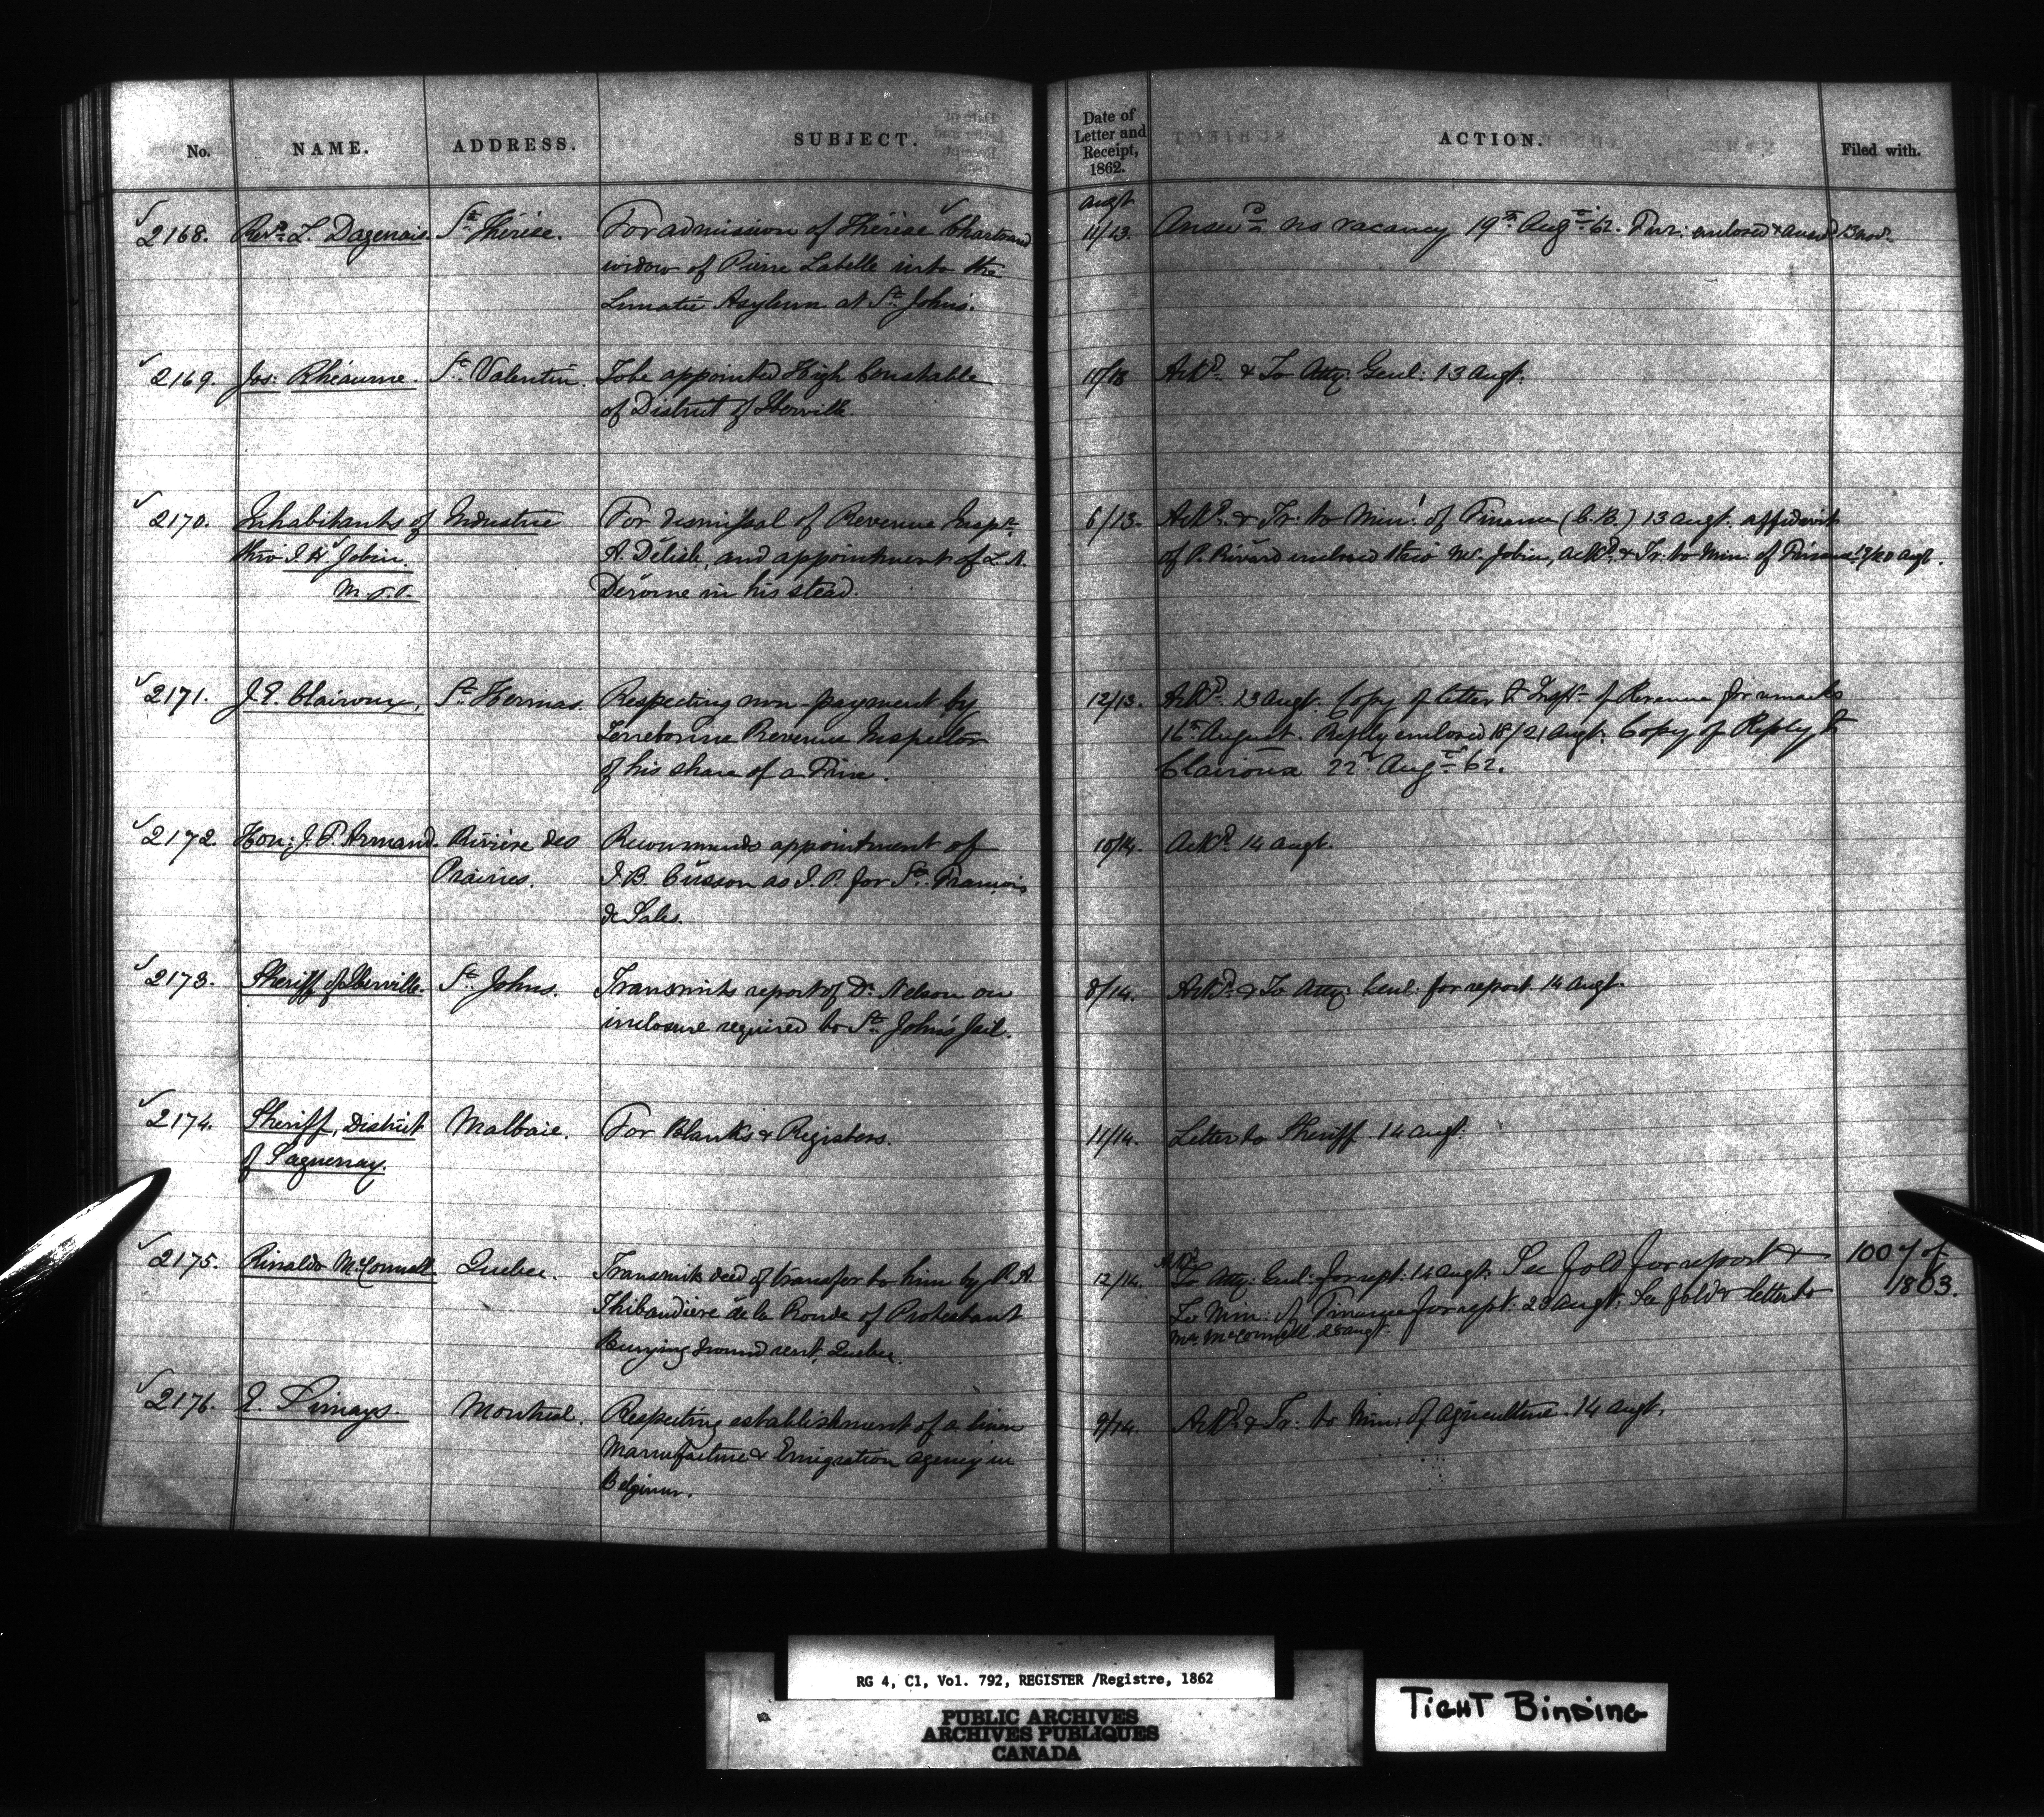 No. NAME. ADDRESS. SUBJECT. Date of Letter and Receipt, 1862. ACTION. Filed with.
Augt
2168. Revd. L. Dagenais. St. Thérèse. For admission of Thérèse Chartrand 11/13. Answd. no vacancy 19th Augt. 62. Fur: enclosed & answd 13 Nov.
widow of Pierre Labelle into the
Lunatic Asylum at St. Johns.
2169. Jos: Rhéaume. St. Valentin. To be appointed High Constable 11/13 Ackd. & To Atty: Genl: 13 Augt.
of District of Iberville.
2170. Inhabitants of Industrie For dismissal of Revenue Inspr. 6/13. Ackd. & Tr: to Min: of Finance (C.B.) 13 Augt. affidavit
thro' J. H. Jobin. A. Délisle, and appointment of L. A. of P. Rivard enclosed thro' Mr. Jobin, Ackd. & Tr: to Min: of Finance 19/20 Augt.
M.P.P. Derome in his stead.
2171. J. E. Clairoux, St. Hermas. Respecting non-payment by 12/13. Ackd. 13 Augt. Copy of letter to Inspr. of Revenue for remarks
Terrebonne Revenue Inspector 16th August. Reply enclosed 18/21 Augt. Copy of Reply to
of his share of a Fine. Clairoux 22d Augt. 62.
2172. Hon: J. F. Armand. Rivière des Recommends appointment of 10/14. Ackd. 14 Augt.
Prairies. J. B. Cusson as J. P. for St. François
de Sales.
2173. Sheriff of Iberville. St. Johns. Transmits report of Dr. Nelson on 8/14. Ackd. & To Atty: Genl: for report 14 Augt.
inclosure required to St. John's Jail.
2174. Sheriff, District Malbaie. For Blanks & Registers. 11/14. Letter to Sheriff 14 Augt.
of Saguenay.
2175. Rinaldo McConnell Quebec. Transmits deed of transfer to him by R. A. 12/14. Ackd. To Atty: Genl: for rept: 14 Augt. See fold for report & 1007 of
Thibaudiere de la Ronde of Protestant To Min: of Finance for rept: 23 Augt. See fold & letter to 1863.
Burying Ground rent, Quebec. Mr. McConnell 28 Augt.
2176. J. Simays. Montreal. Respecting establishment of a linen 9/14. Ackd. & Tr: to Min: of Agriculture. 14 Augt.
Manufacture & Emigration agency in
Belgium.
RG 4, C1, Vol. 792, REGISTER /Registre, 1862
PUBLIC ARCHIVES
ARCHIVES PUBLIQUES
CANADA
TIGHT BINDING